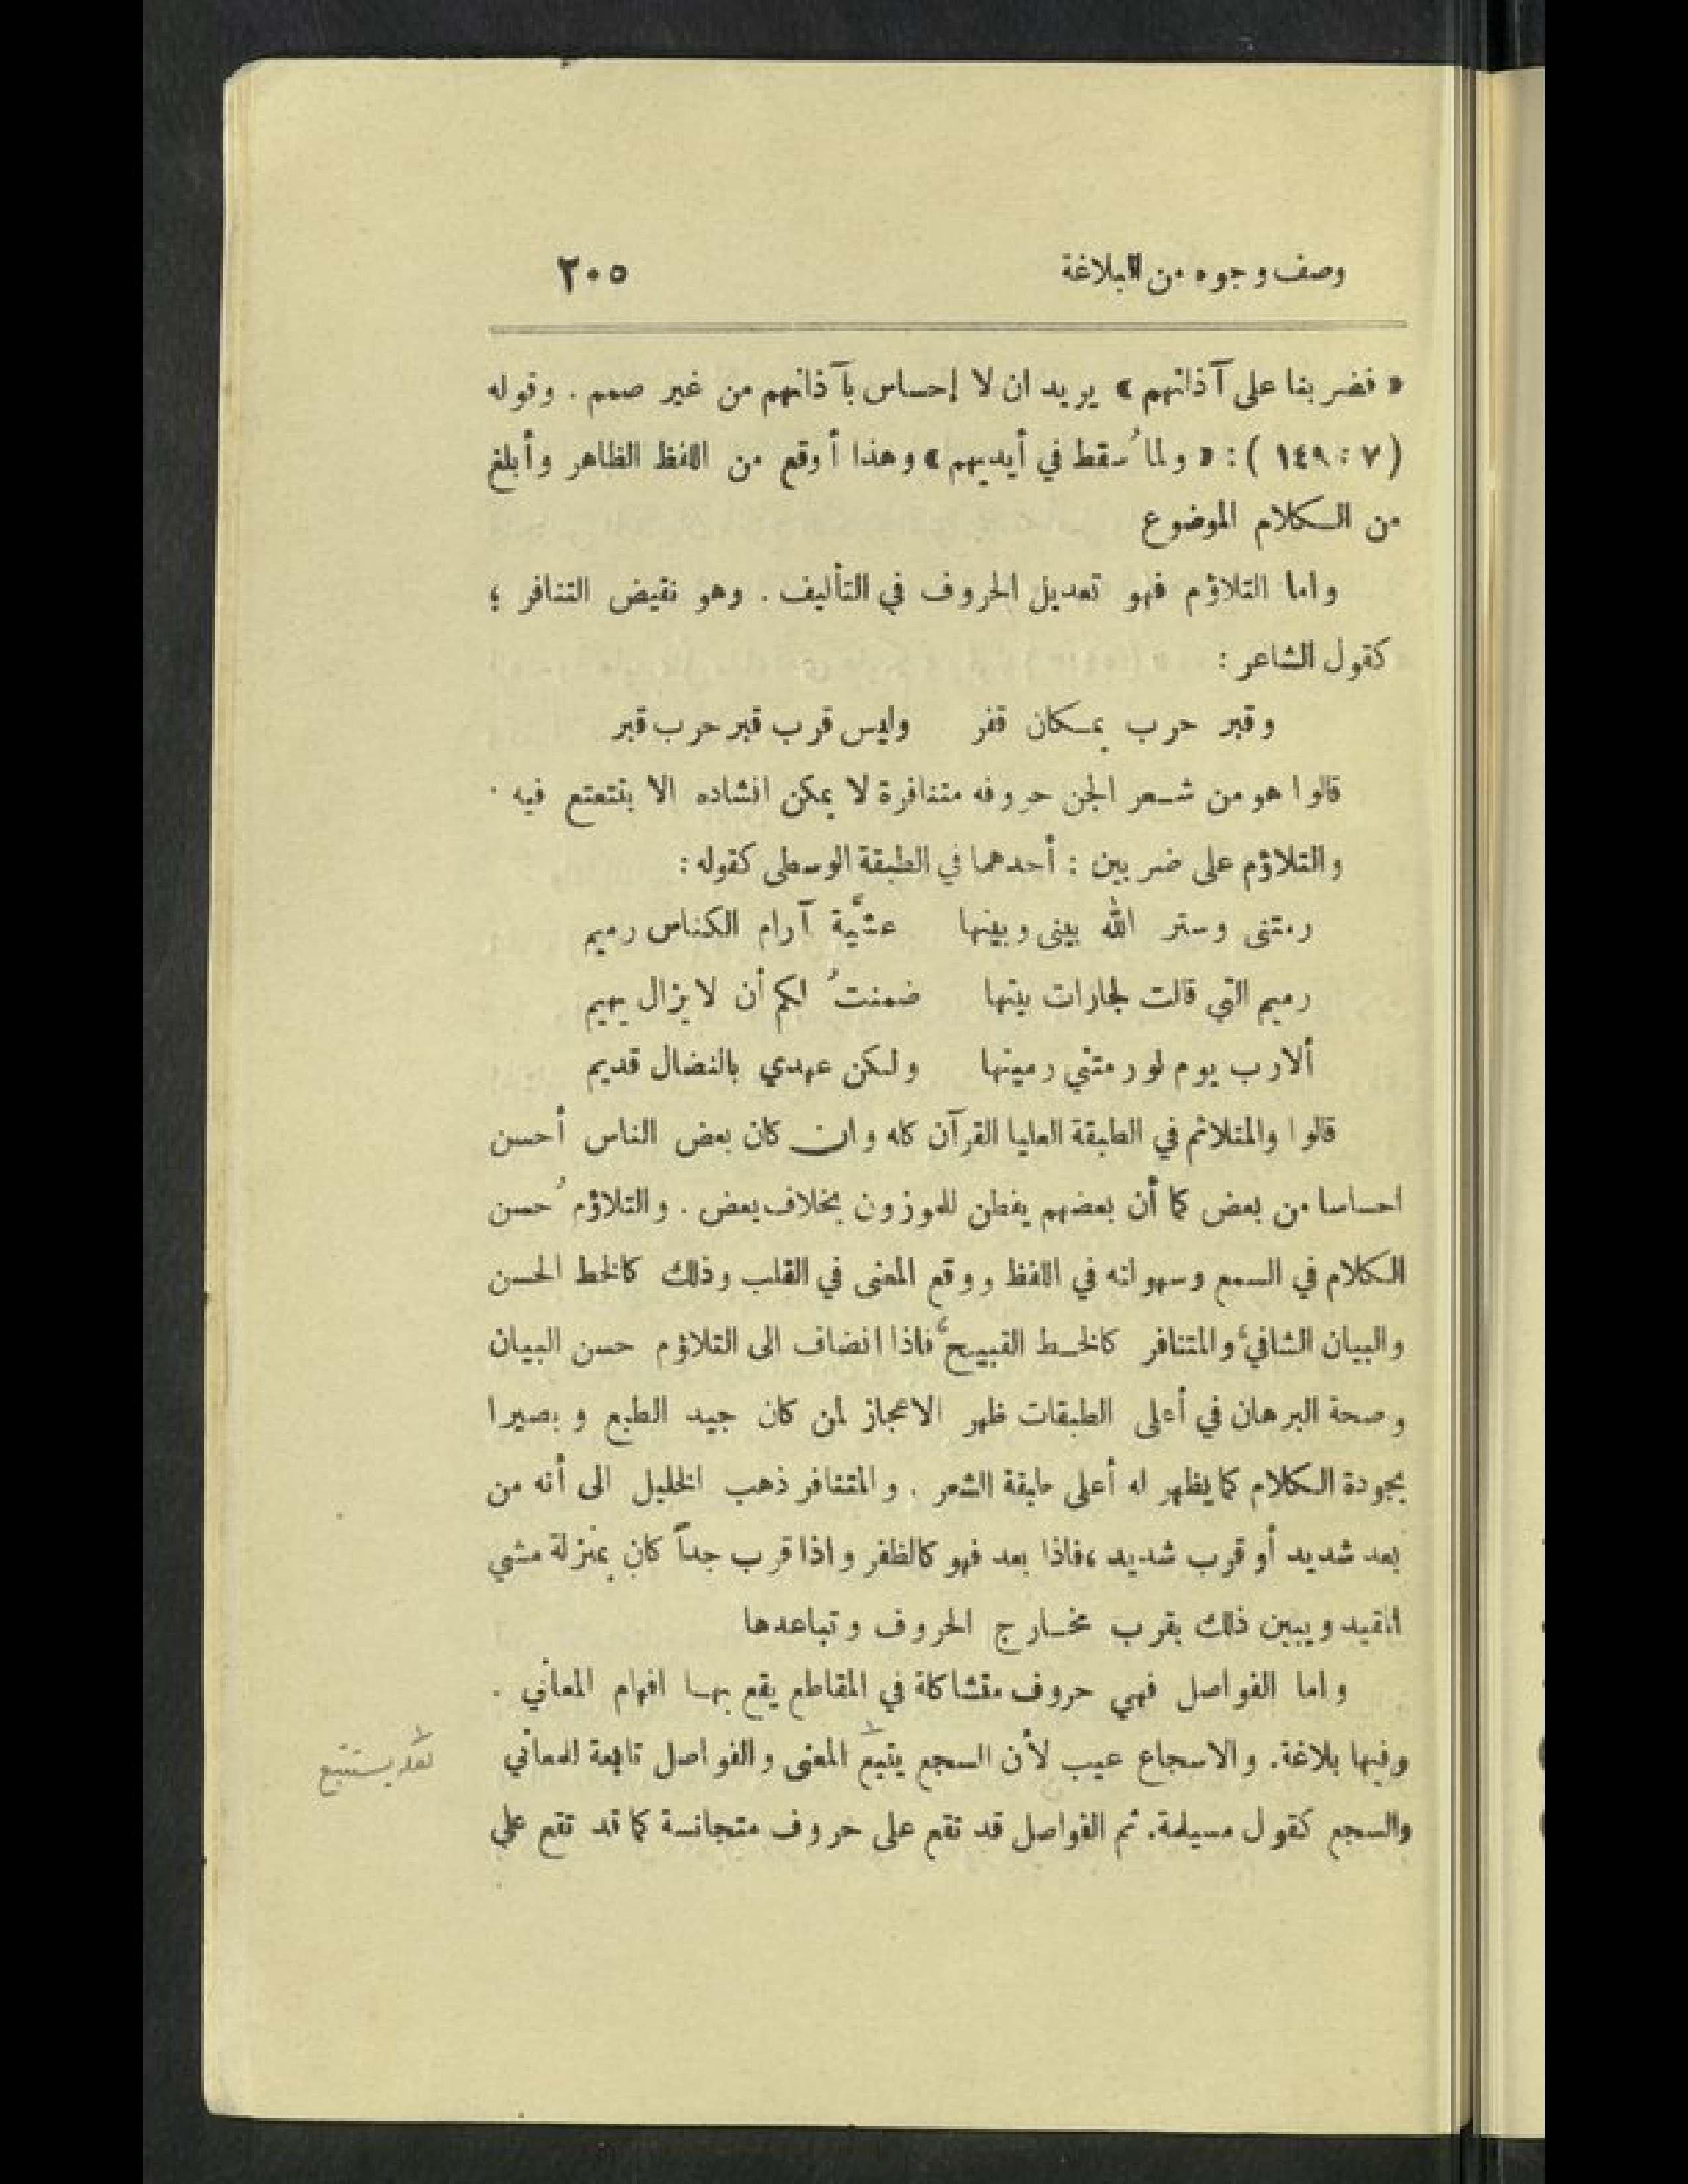 وصف وجوه من البلاغة ٢٠٥
« فضربنا على آذانهم » يريد ان لا إحساس بآذانهم من غير صمم . وقوله
( ٧ : ١٤٩ ) : « ولما سُقط في أيديهم » وهذا أوقع من اللفظ الظاهر وأبلغ
من الكلام الموضوع
واما التلاؤم فهو تعديل الحروف في التأليف . وهو نقيض التنافر ؛
كقول الشاعر :
وقبر حرب بمكان قفر وليس قرب قبر حرب قبر
قالوا هو من شعر الجن حروفه متنافرة لا يمكن انشاده الا بتتعتع فيه .
والتلاؤم على ضربين : أحدهما في الطبقة الوسطى كقوله :
رمتنى وستر الله بينى وبينها عشيَّة آرام الكناس رميم
رميم التي قالت لجارات بيتها ضمنتُ لكم أن لا يزال يهيم
ألا رب يوم لو رمتني رميتها ولكن عهدي بالنضال قديم
قالوا والمتلائم في الطبقة العليا القرآن كله وان كان بعض الناس أحسن
احساسا من بعض كما أن بعضهم يفطن للموزون بخلاف بعض . والتلاؤم حُسن
الكلام في السمع وسهولته في اللفظ ووقع المعنى في القلب وذلك كالخط الحسن
والبيان الشافي، والمتنافر كالخط القبيح، فاذا انضاف الى التلاؤم حسن البيان
وصحة البرهان في أعلى الطبقات ظهر الاعجاز لمن كان جيد الطبع وبصيرا
بجودة الكلام كما يظهر له أعلى طبقة الشعر . والمتنافر ذهب الخليل الى أنه من
بعد شديد أو قرب شديد ، فاذا بعد فهو كالظفر واذا قرب جداً كان بمنزلة مشي
المقيد ويبين ذلك بقرب مخارج الحروف وتباعدها
واما الفواصل فهي حروف متشاكلة في المقاطع يقع بها افهام المعاني .
وفيها بلاغة. والاسجاع عيب لأن السجع يتبع المعنى والفواصل تابعة للمعاني
لعله يستتبع
والسجع كقول مسيلمة. ثم الفواصل قد تقع على حروف متجانسة كما قد تقع على